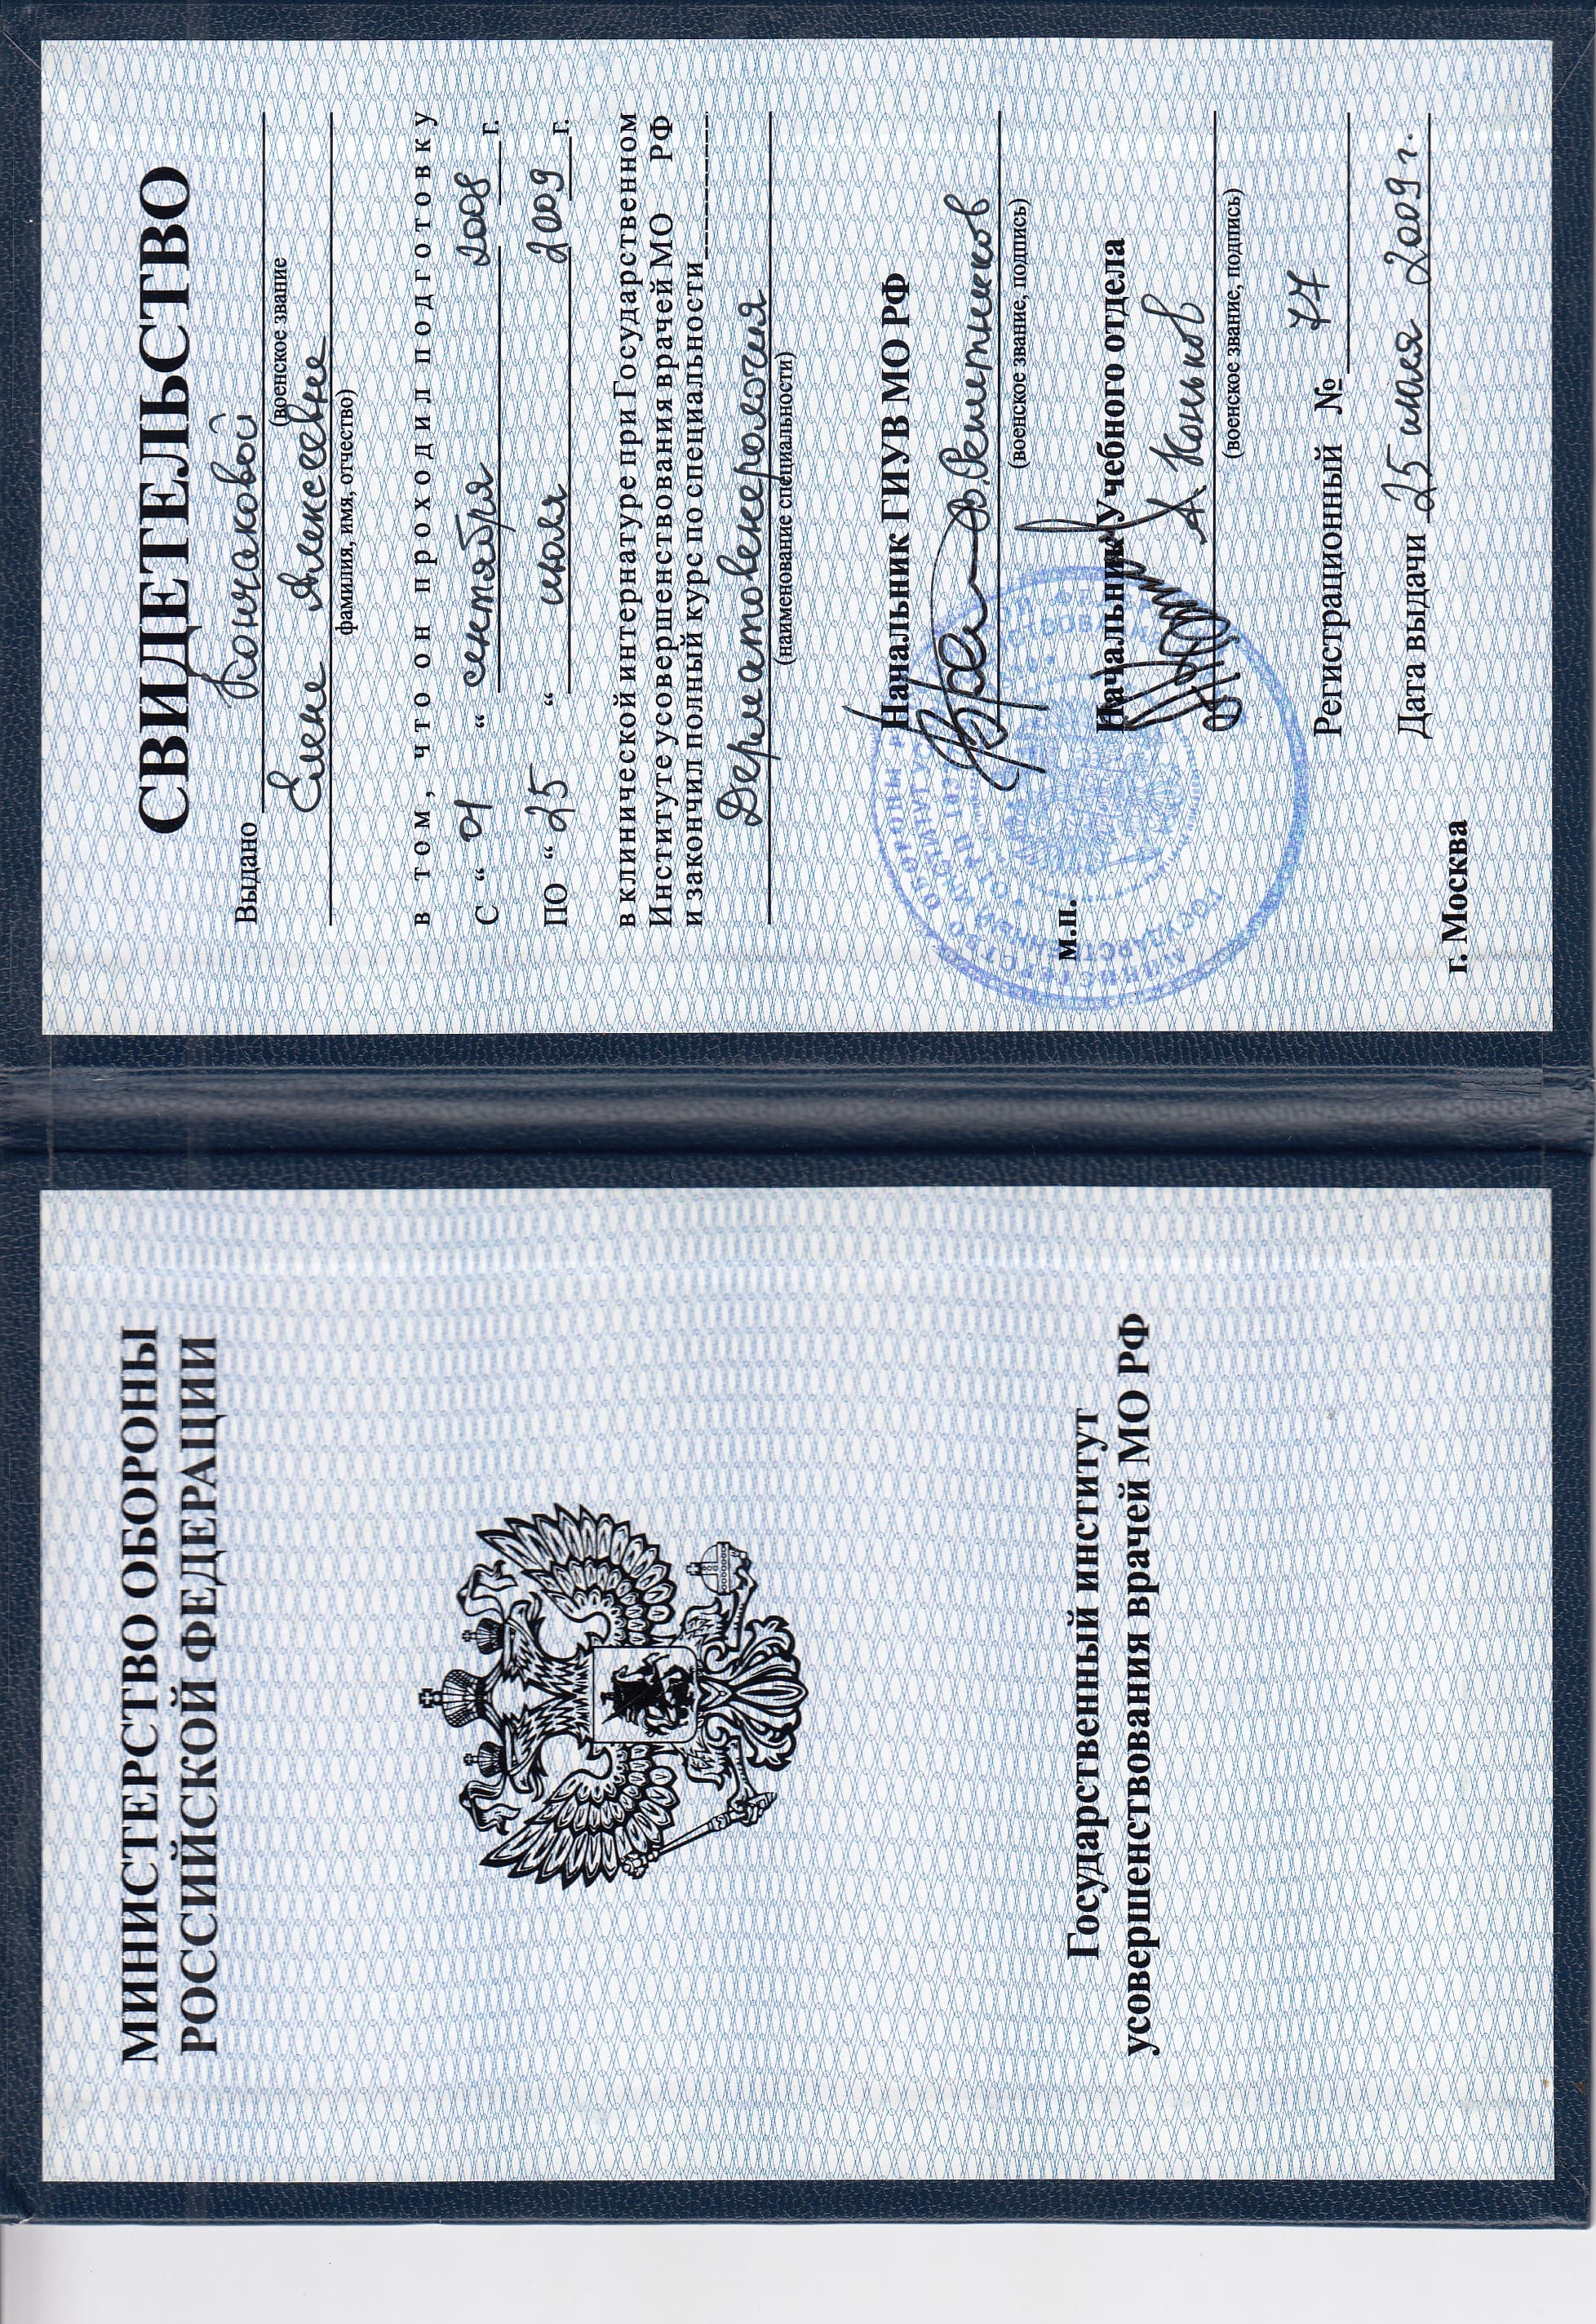 МИНИСТЕРСТВО ОБОРОНЫ
РОССИЙСКОЙ ФЕДЕРАЦИИ
Государственный институт
усовершенствования врачей МО РФ
СВИДЕТЕЛЬСТВО
Выдано Кончаковой
(военское звание
Елене Алексеевне
фамилия, имя, отчество)
в том, что он проходил подготовку
С “ 01 “ сентября 2008 г.
ПО “ 25 “ июля 2009 г.
в клинической интернатуре при Государственном
Институте усовершенствования врачей МО РФ
и закончил полный курс по специальности
Дерматовенерология
(наименование специальности)
Начальник ГИУВ МО РФ
В. Решетников
(военское звание, подпись)
м.п.
Начальник Учебного отдела
А Коньков
(военское звание, подпись)
МИНИСТЕРСТВО ОБОРОНЫ
ИНСТИТУТ
Регистрационный № 77
Дата выдачи 25 июля 2009 г.
г. Москва